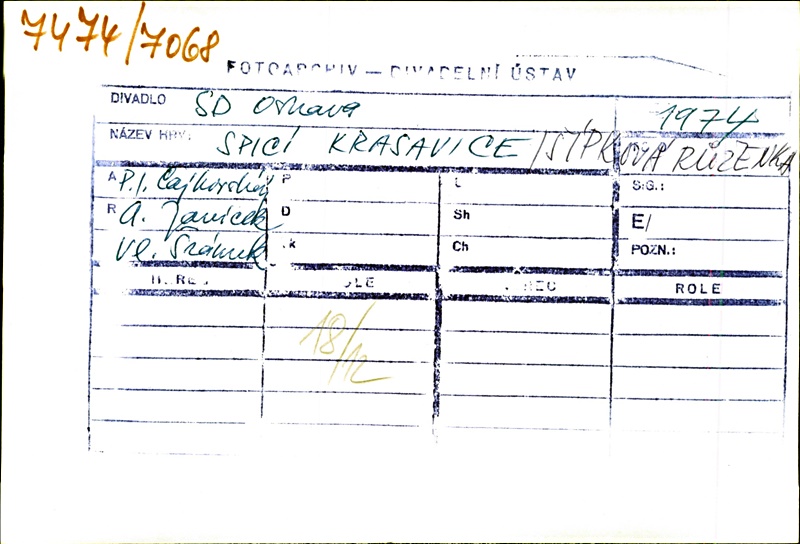 7474/7068
FOTOARCHIV — DIVADELNÍ ÚSTAV
DIVADLO SD Ostrava 1974
NÁZEV HRY: SPICÍ KRASAVICE /ŠÍPKOVÁ RŮŽENKA
A P.I. Čajkovskij P L SIG.:
R A. Janíček D Sh E/
Vl. Šrámek .k Ch POZN.:
HEREC ROLE HEREC ROLE
18/12